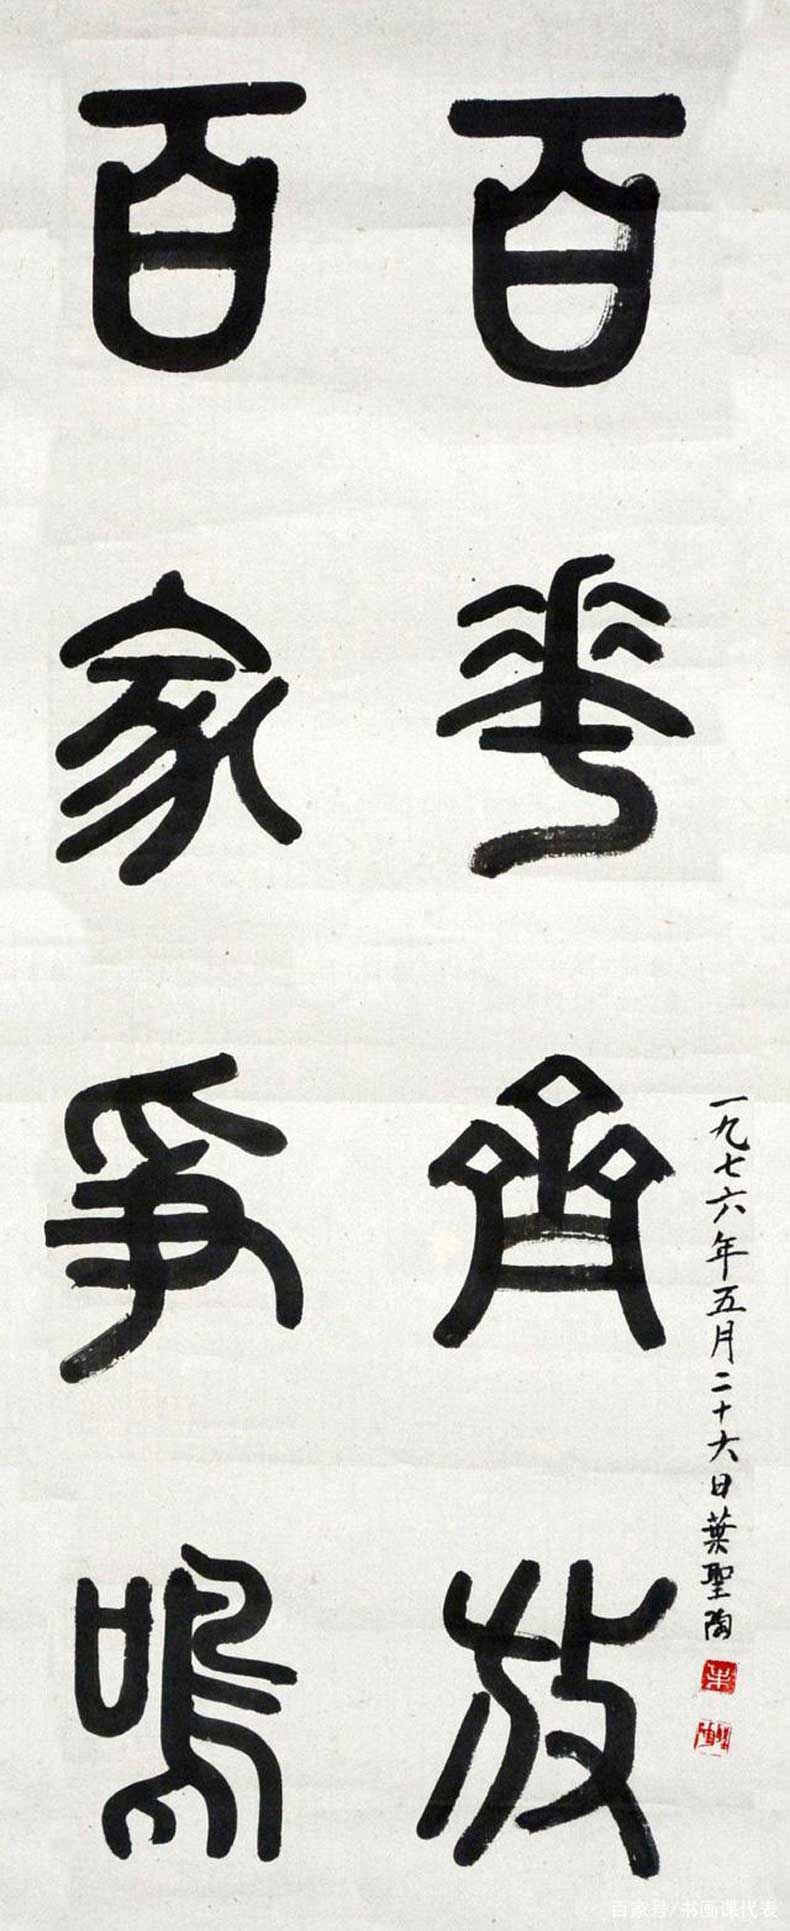 百花齊放
百家爭鳴
一九七六年五月二十六日葉聖陶
百家号/书画课代表